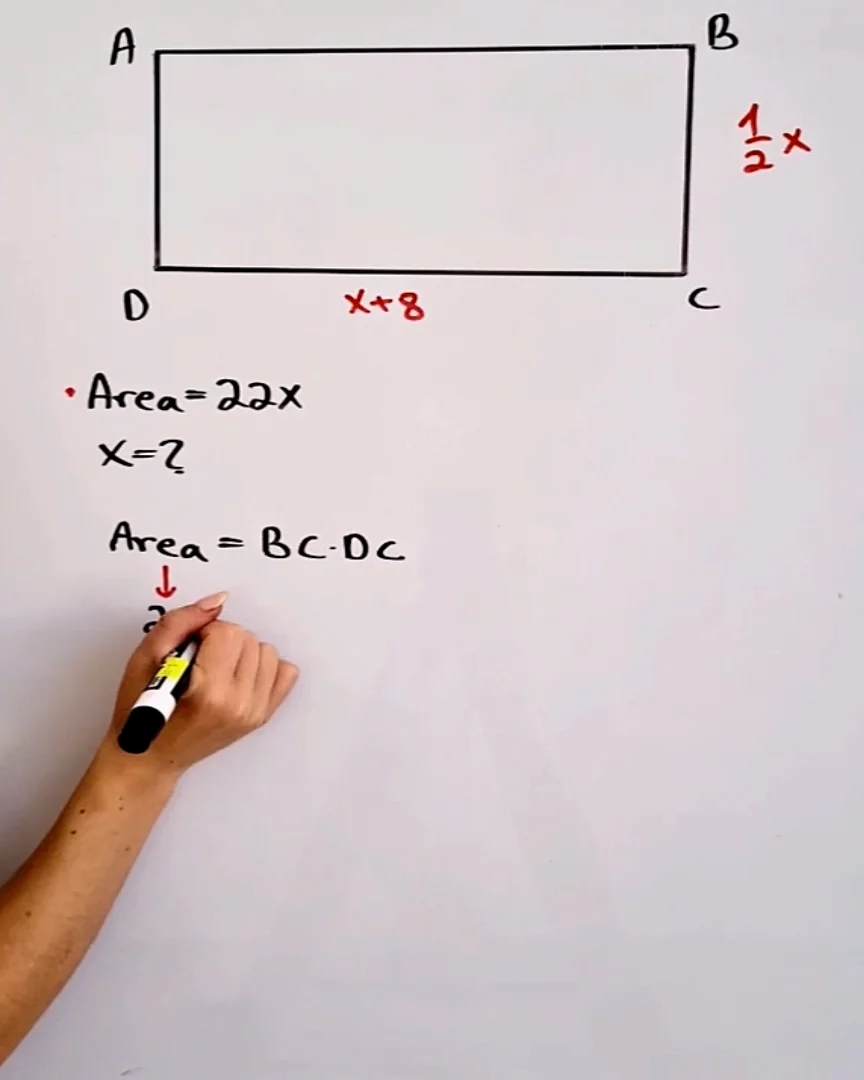 A
B
1/2 x
D
x+8
C
• Area=22x
x=?
Area = BC·DC
↓
2